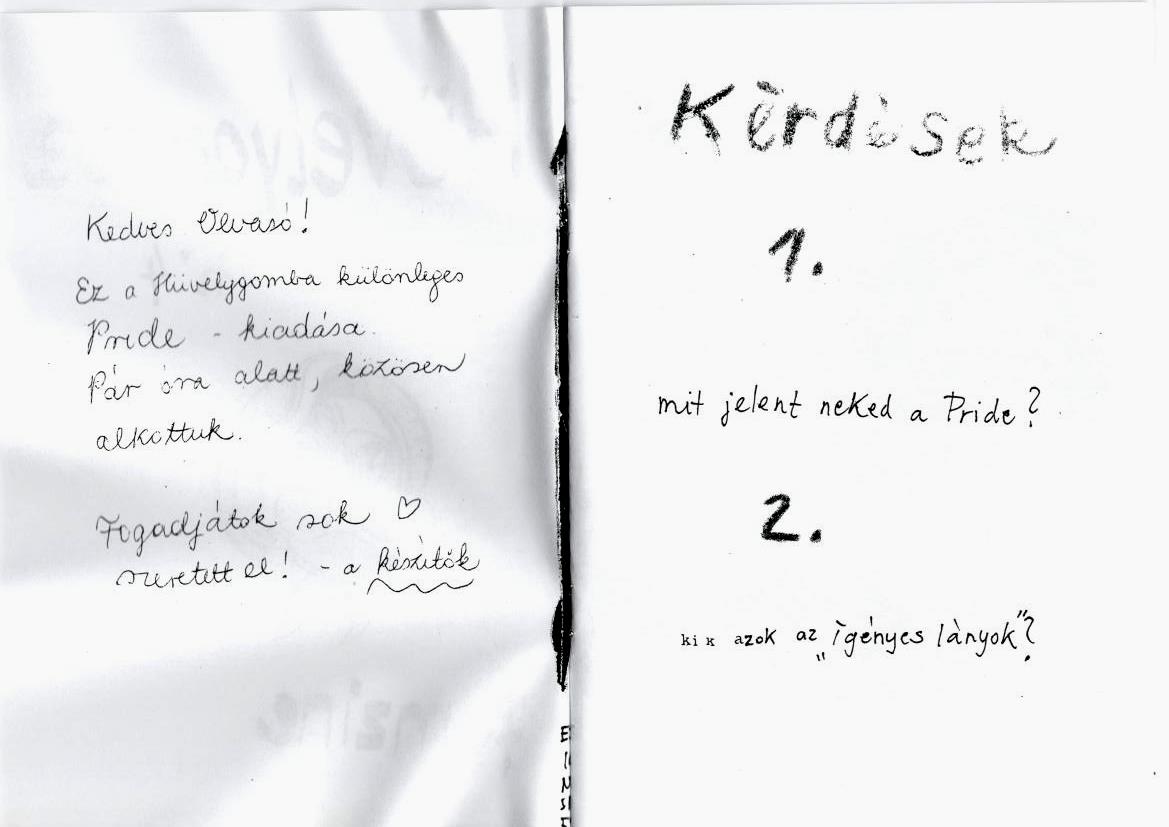 Kedves Olvasó!
Ez a Hüvelygomba különleges
Pride - kiadása.
Pár óra alatt, közösen
alkottuk.
Fogadjátok sok ♡
szeretettel! - a készítők
Kérdések
1.
mit jelent neked a Pride?
2.
kik azok az „igényes lányok"?